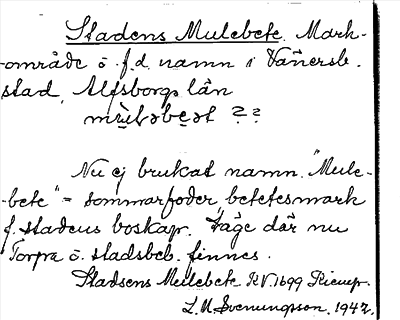 Stadens Mulebete. Mark-
område o. f.d. namn i Vänersb.
stad, Älfsborgs län
??
Nu ej brukat namn. "Mule-
bete" = sommarfoder, betesmark
f. stadens boskap. Låge där nu
Torpa o. stadsbeb. finnes.
Stadsens Mulebete RV. 1699
L.M. Svenungsson. 1942.